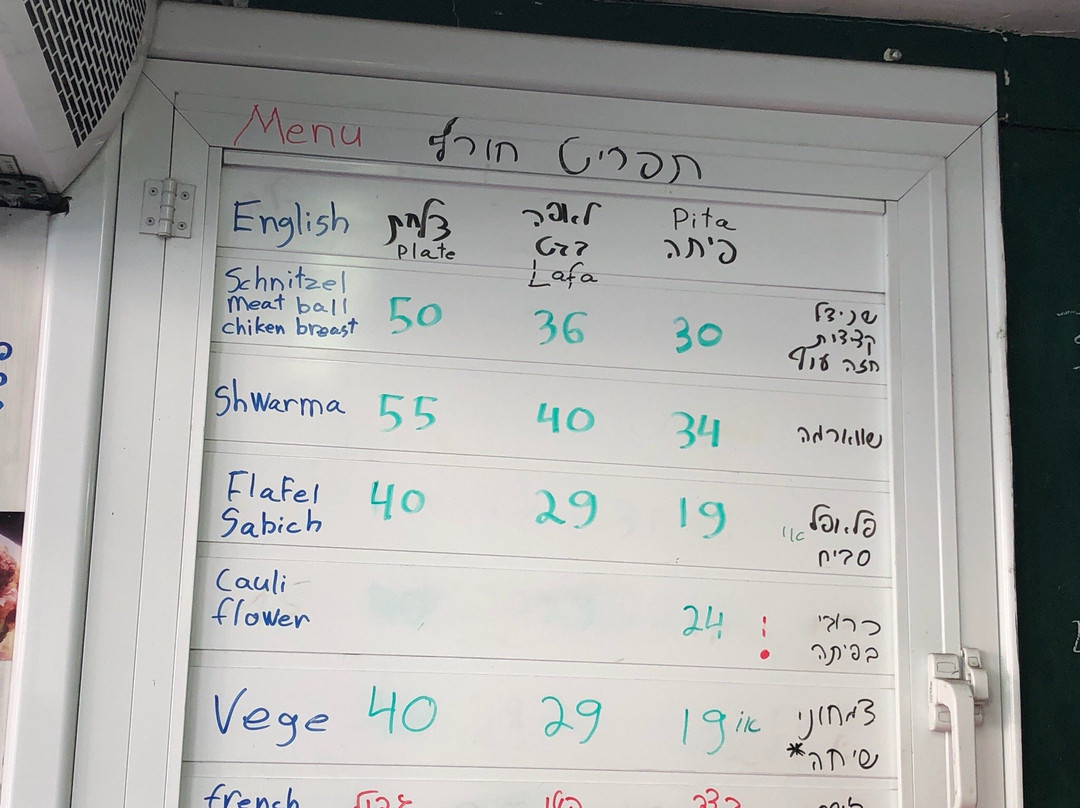 Menu תפריט חורף
English צלחת לאפה Pita
Plate ברט פיתה
Lafa
Schnitzel
meat ball 50 36 30 שניצל
chiken breast קציצות
חזה עוף
Shwarma 55 40 34 שווארמה
Flafel 40 29 19 פלאפל או
Sabich סביח
Cauli
flower 24 ! כרובי
בפיתה
Vege 40 29 19 או צמחוני
שיחה*
french